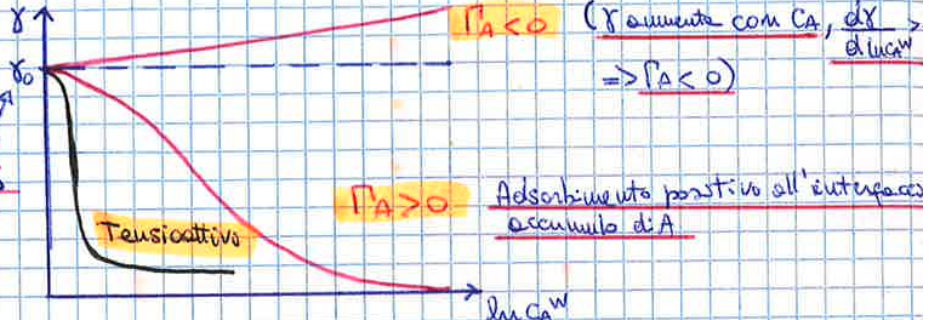 γ
Γ_A<0 (γ aumenta con C_A, dγ/dlnc_A^W >
γ_0
=> Γ_A<0)
Γ_A>0 Adsorbimento positivo all'interfaccia
accumulo di A
Tensioattivo
ln C_A^W